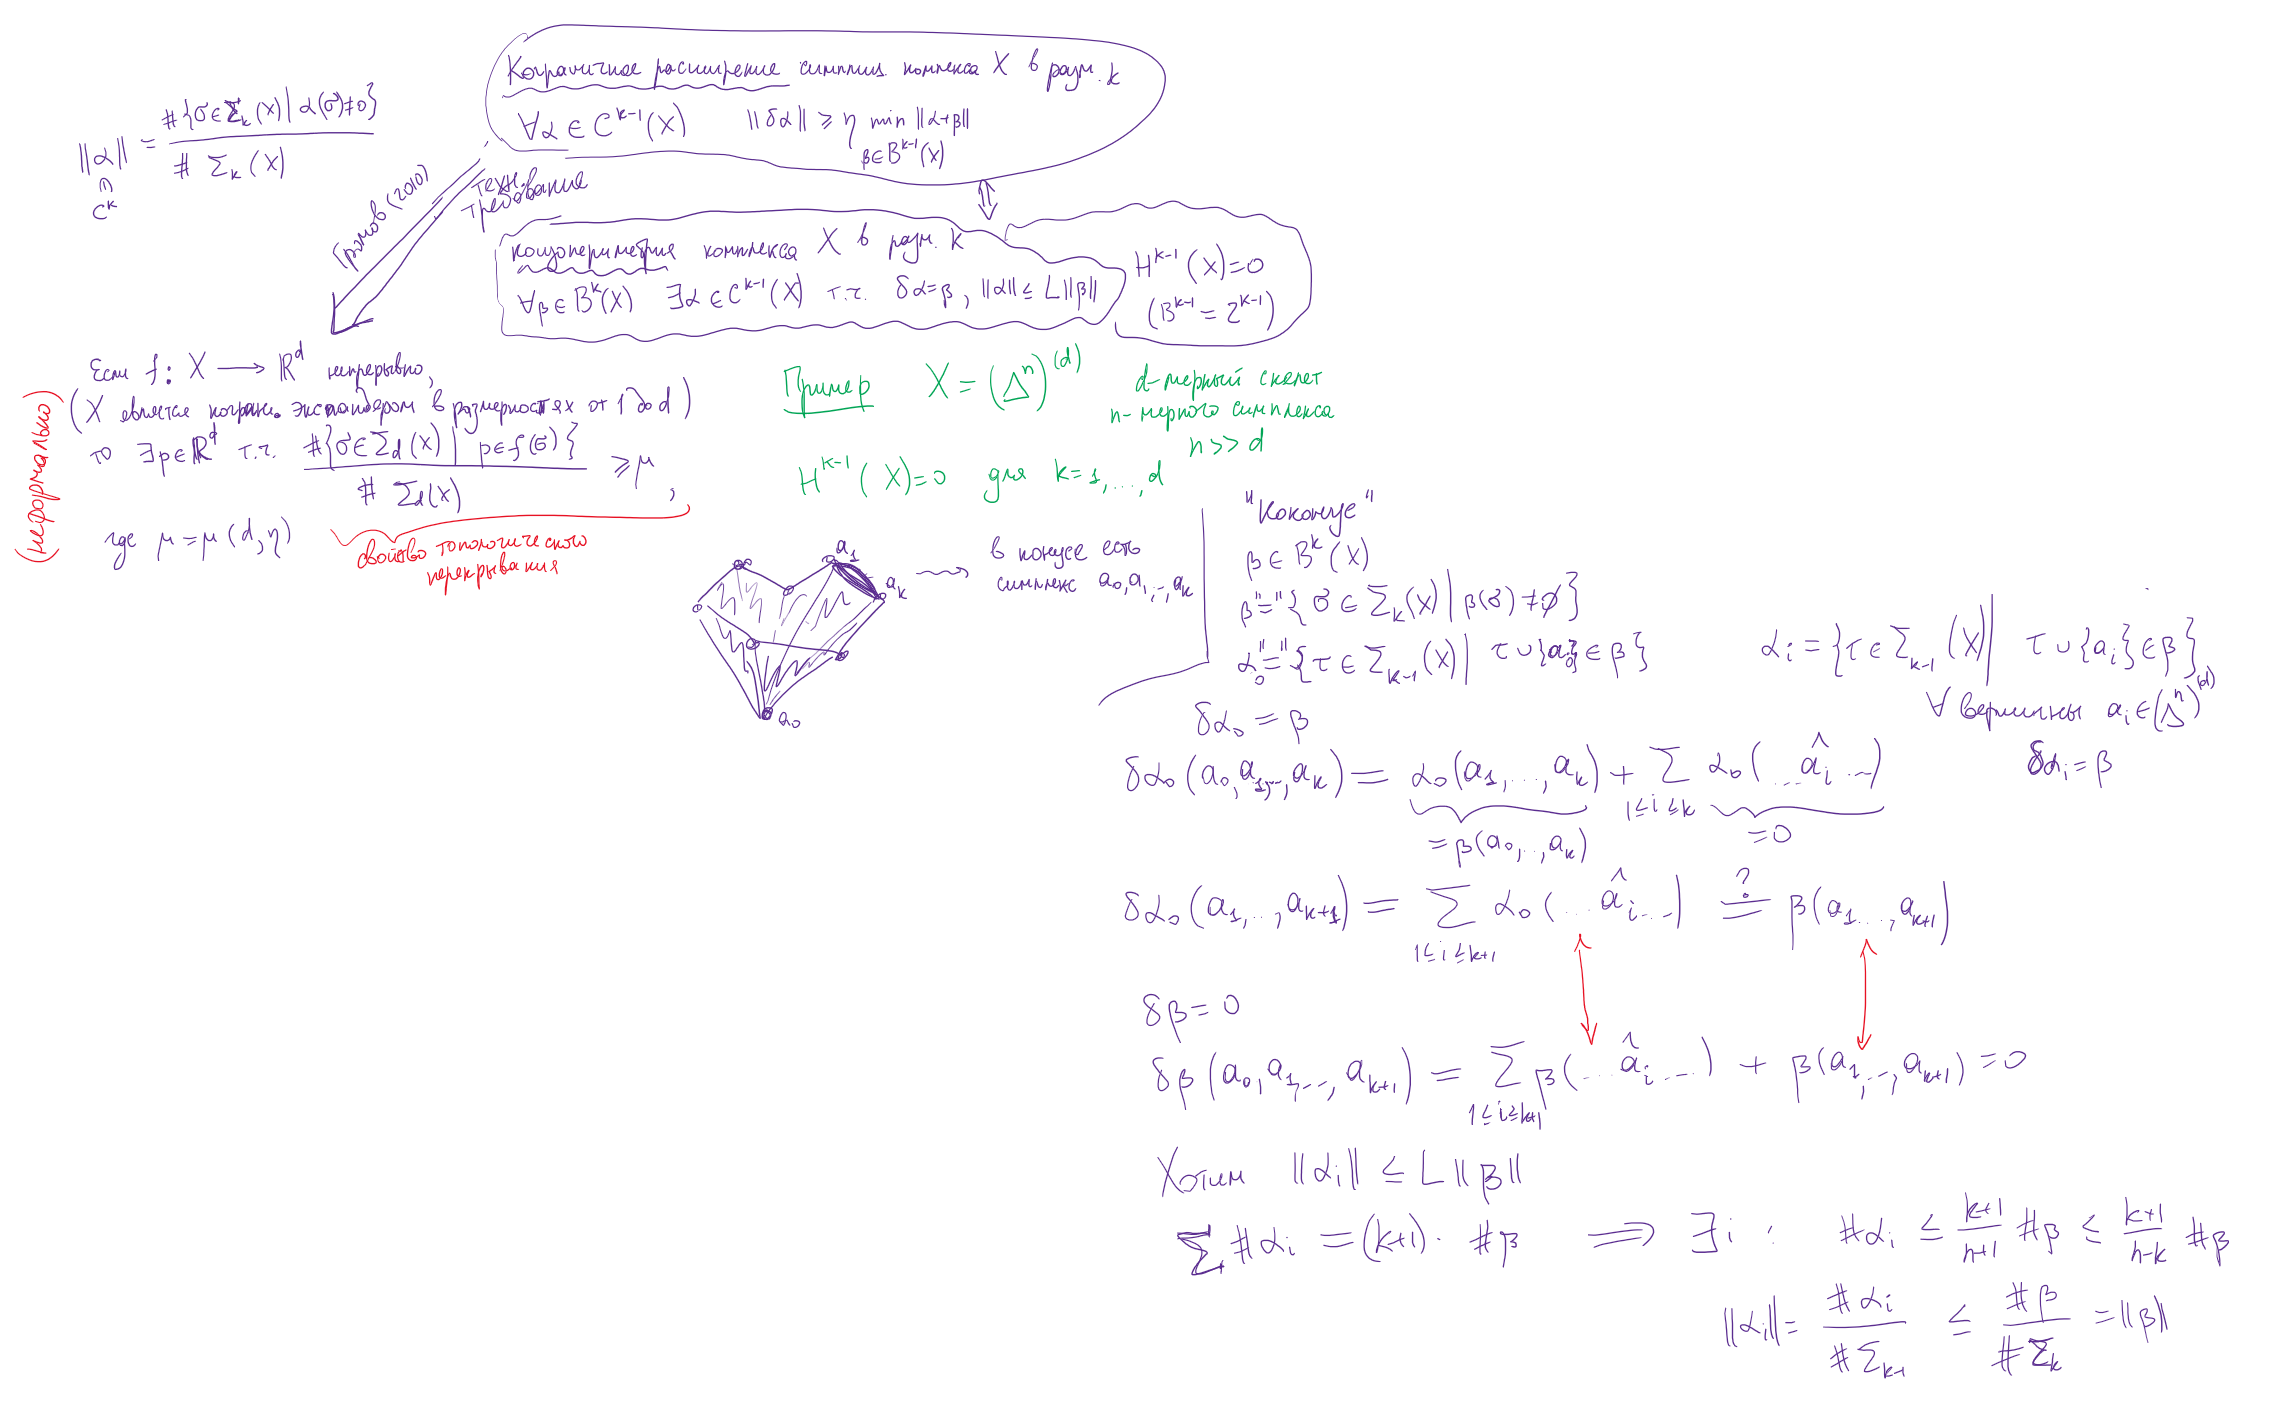 Кограничное расширение симплиц. комплекса X в разм. k
∀α ∈ C^{k-1}(X) ||δα|| ≥ η min ||α+β||
β∈B^{k-1}(X)
||α|| = #{σ∈Σ_k(X) | α(σ)≠0} / # Σ_k(X)
∩
C^k
Громов (2010)
техн.
требование
⇕
коизопериметрия комплекса X в разм. k
∀β ∈ B^k(X) ∃α ∈ C^{k-1}(X) т.ч. δα=β, ||α|| ≤ L||β||
H^{k-1}(X)=0
(B^{k-1} = Z^{k-1})
(неформально)
Если f: X ⟶ ℝ^d непрерывно,
(X является когран. экспандером в размерностях от 1 до d)
то ∃p∈ℝ^d т.ч. #{σ∈Σ_d(X) | p∈f(σ)} / # Σ_d(X) ≥ μ,
где μ = μ(d,η)
свойство топологического
перекрывания
Пример X = (Δ^n)^{(d)}
d-мерный скелет
n-мерного симплекса
n >> d
H^{k-1}(X)=0 для k=1,...,d
a_1
a_k
a_0
в конусе есть
симплекс a_0,a_1,..,a_k
"Коконус"
β ∈ B^k(X)
β "=" {σ ∈ Σ_k(X) | β(σ) ≠ ∅}
α_0 "=" {τ ∈ Σ_{k-1}(X) | τ ∪ {a_0} ∈ β}
α_i = {τ ∈ Σ_{k-1}(X) | τ ∪ {a_i} ∈ β}
∀ вершины a_i ∈ (Δ^n)^{(d)}
δα_i = β
δα_0 = β
δα_0(a_0,a_1,..,a_k) = α_0(a_1,...,a_k) + Σ_{1≤i≤k} α_0(...â_i...)
= β(a_0,..,a_k)
=0
δα_0(a_1,..,a_{k+1}) = Σ_{1≤i≤k+1} α_0(...â_i...) ?= β(a_1...,a_{k+1})
δβ = 0
δβ(a_0,a_1,..,a_{k+1}) = Σ_{1≤i≤k+1} β(...â_i...) + β(a_1,..,a_{k+1}) = 0
Хотим ||α_i|| ≤ L||β||
Σ #α_i = (k+1)· #β ⟹ ∃i : #α_i ≤ k+1/n+1 #β ≤ k+1/n-k #β
||α_i|| = #α_i / #Σ_{k-1} ≤ #β / #Σ_k = ||β||